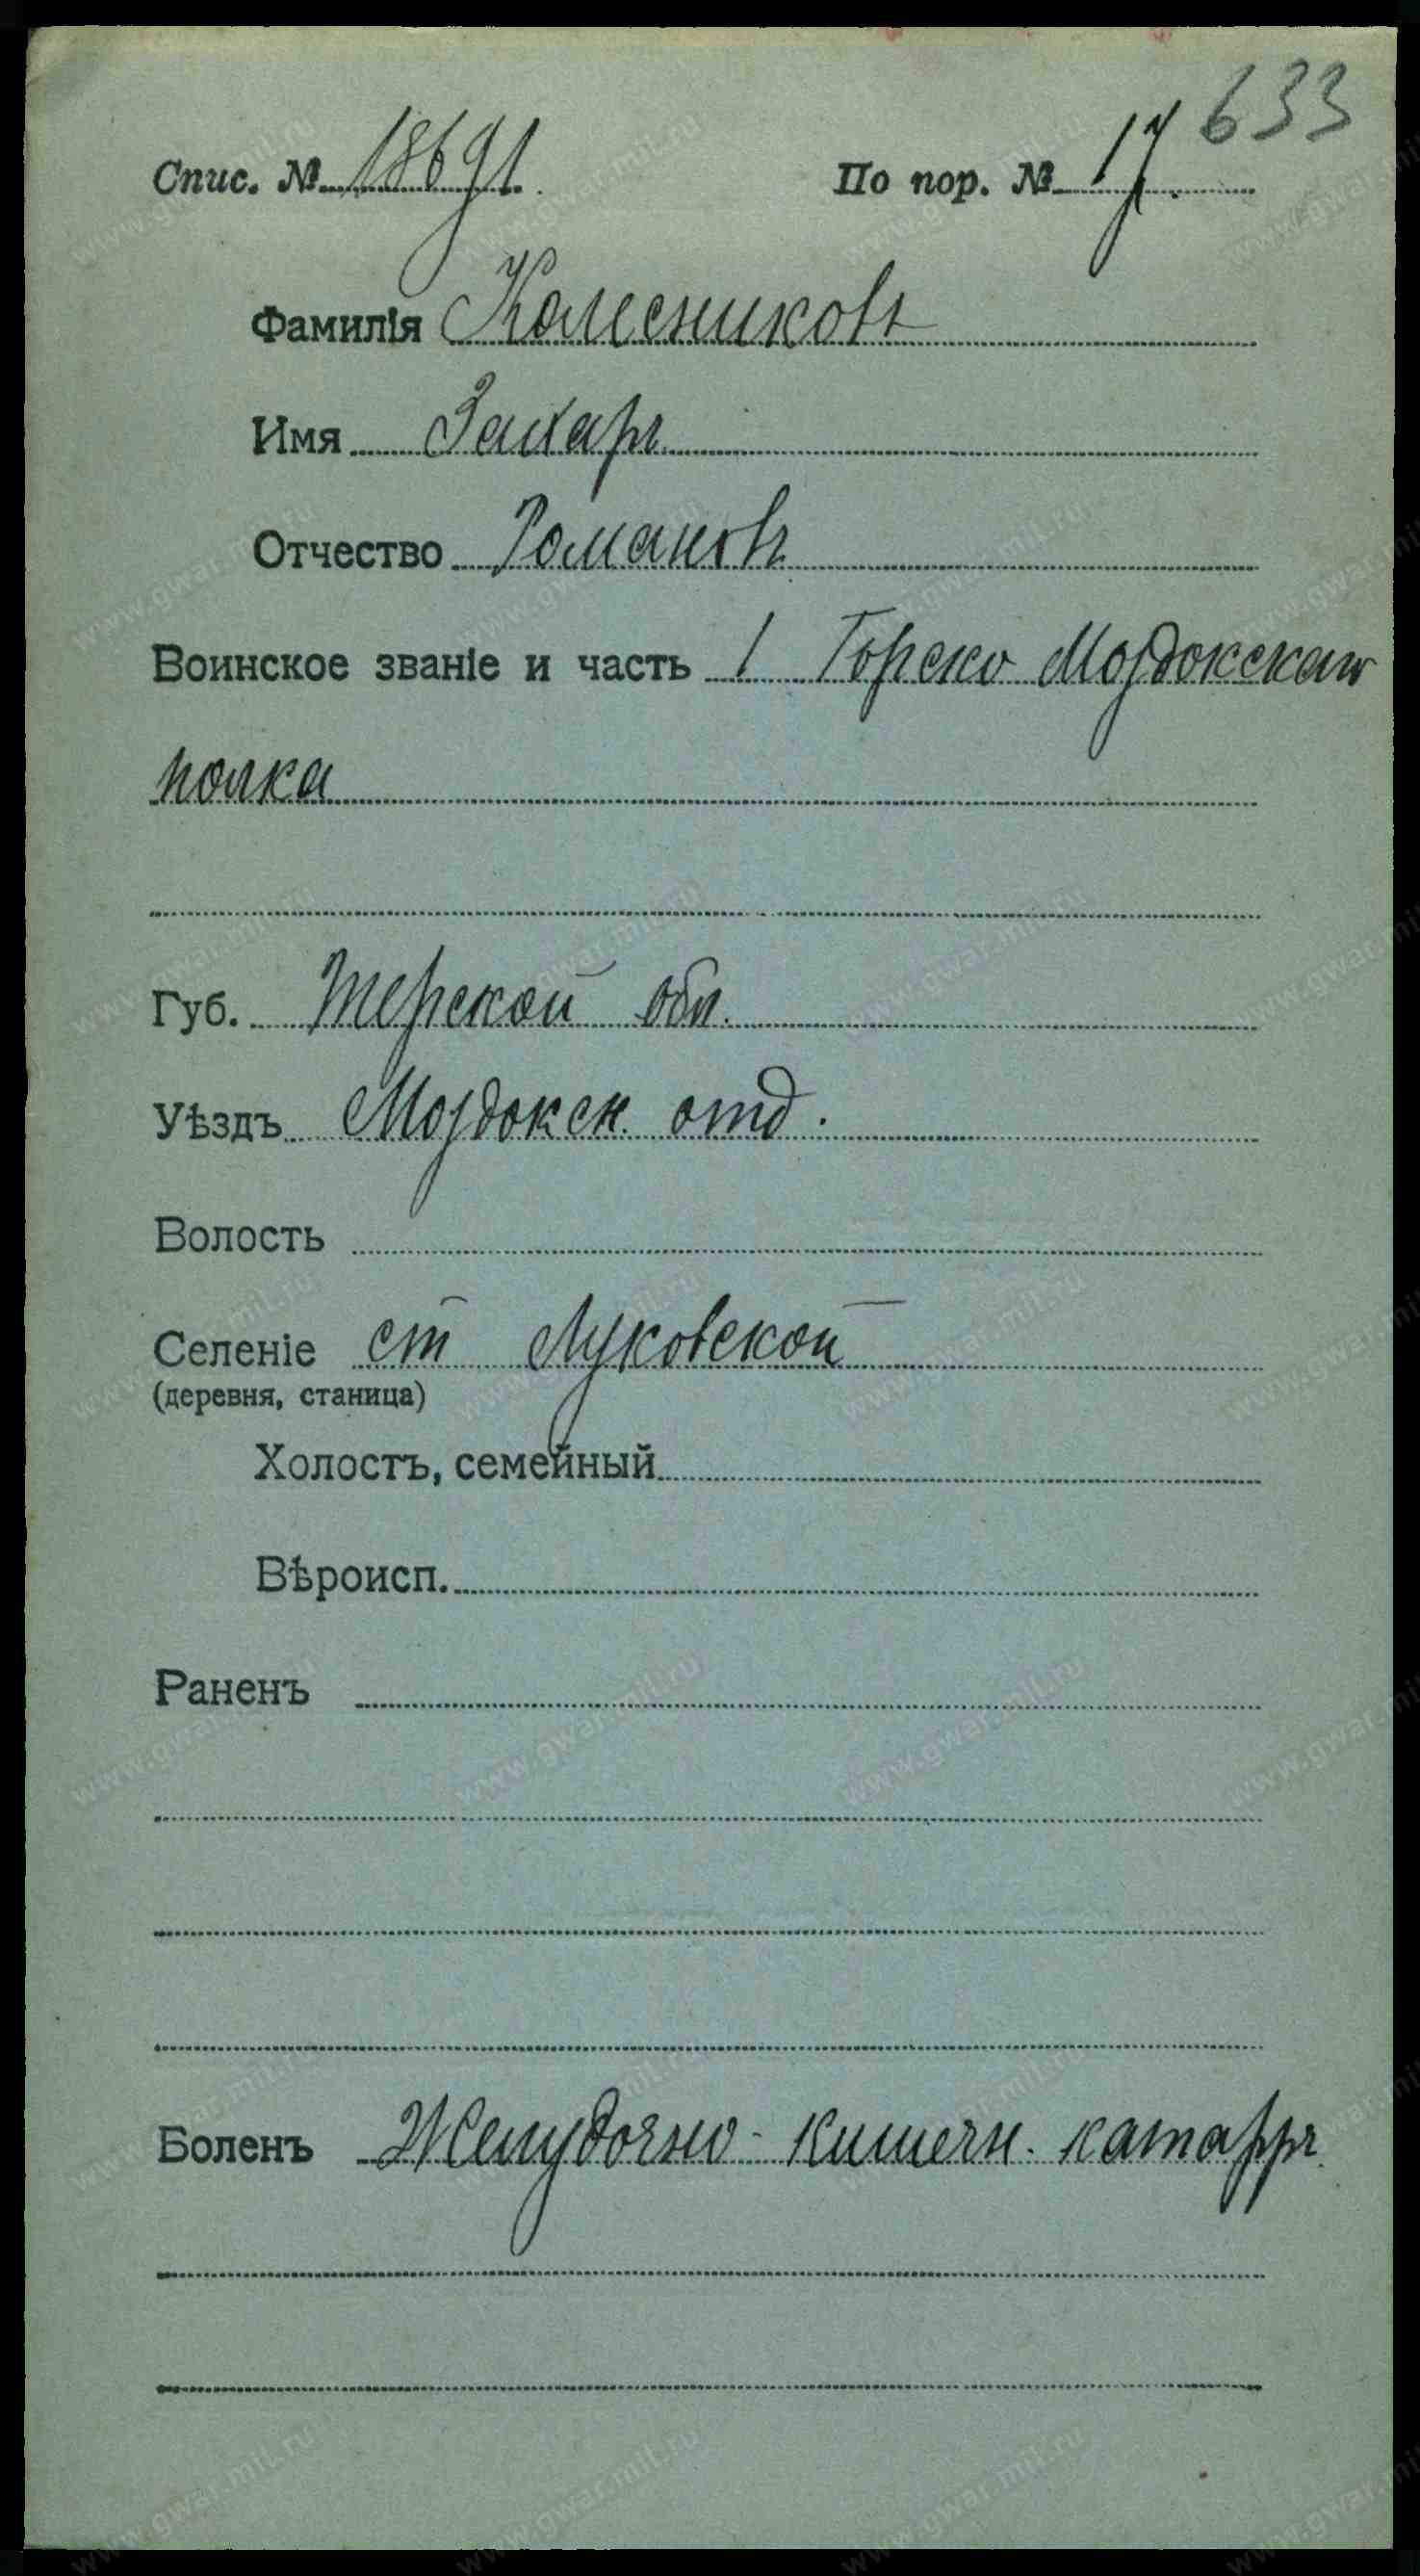 633
Спис. № 18691. По пор. № 17.
Фамилія Колесниковъ
Имя Захаръ
Отчество Романовъ
Воинское званіе и часть 1 Горско Моздокскаго
полка
Губ. Терской обл.
Уѣздъ Моздокск. отд.
Волость
Селеніе ст Луковской
(деревня, станица)
Холостъ, семейный
Вѣроисп.
Раненъ
Боленъ Желудочно-кишечн. катарръ